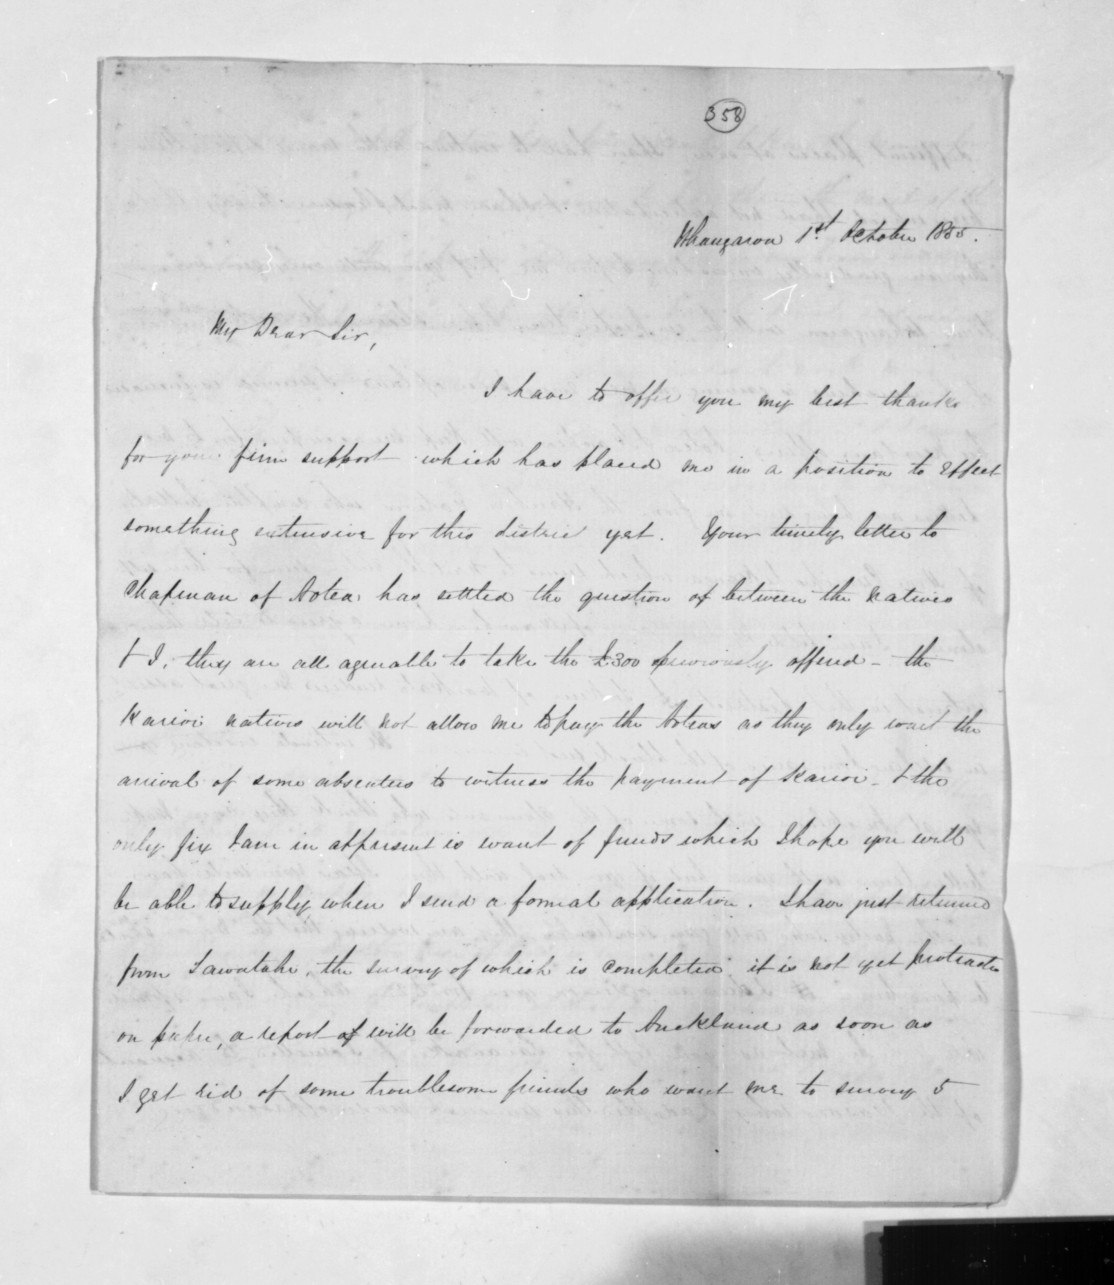 358
Whangaroa 1st October 1855.
My Dear Sir,
I have to offer you my best thanks
for your firm support which has placed me in a position to effect
something extensive for this district yet. Your timely letter to
Chapman of Aotea has settled the question of between the natives
& I, they are all agreeable to take the £300 previously offered - the
Karioi natives will not allow me to pay the Aoteas as they only wait the
arrival of some absentees to witness the payment of Karioi - & the
only fix I am in at present is want of funds which I hope you will
be able to supply when I send a formal application. I have just returned
from the survey of which is completed it is not yet protracted
on paper, a report of will be forwarded to Auckland as soon as
I get rid of some troublesome friends who want me to survey 5